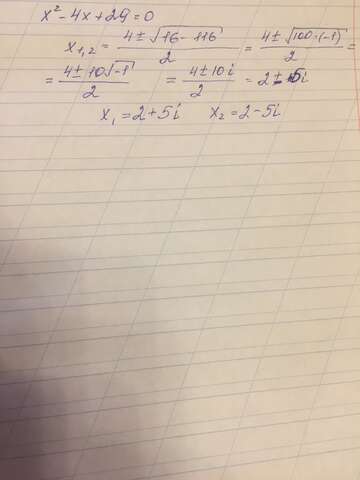 x² - 4x + 29 = 0
x₁,₂ = (4 ± √(16 - 116))/2 = (4 ± √(100·(-1)))/2 =
= (4 ± 10√-1)/2 = (4 ± 10i)/2 = 2 ± 5i
x₁ = 2 + 5i x₂ = 2 - 5i